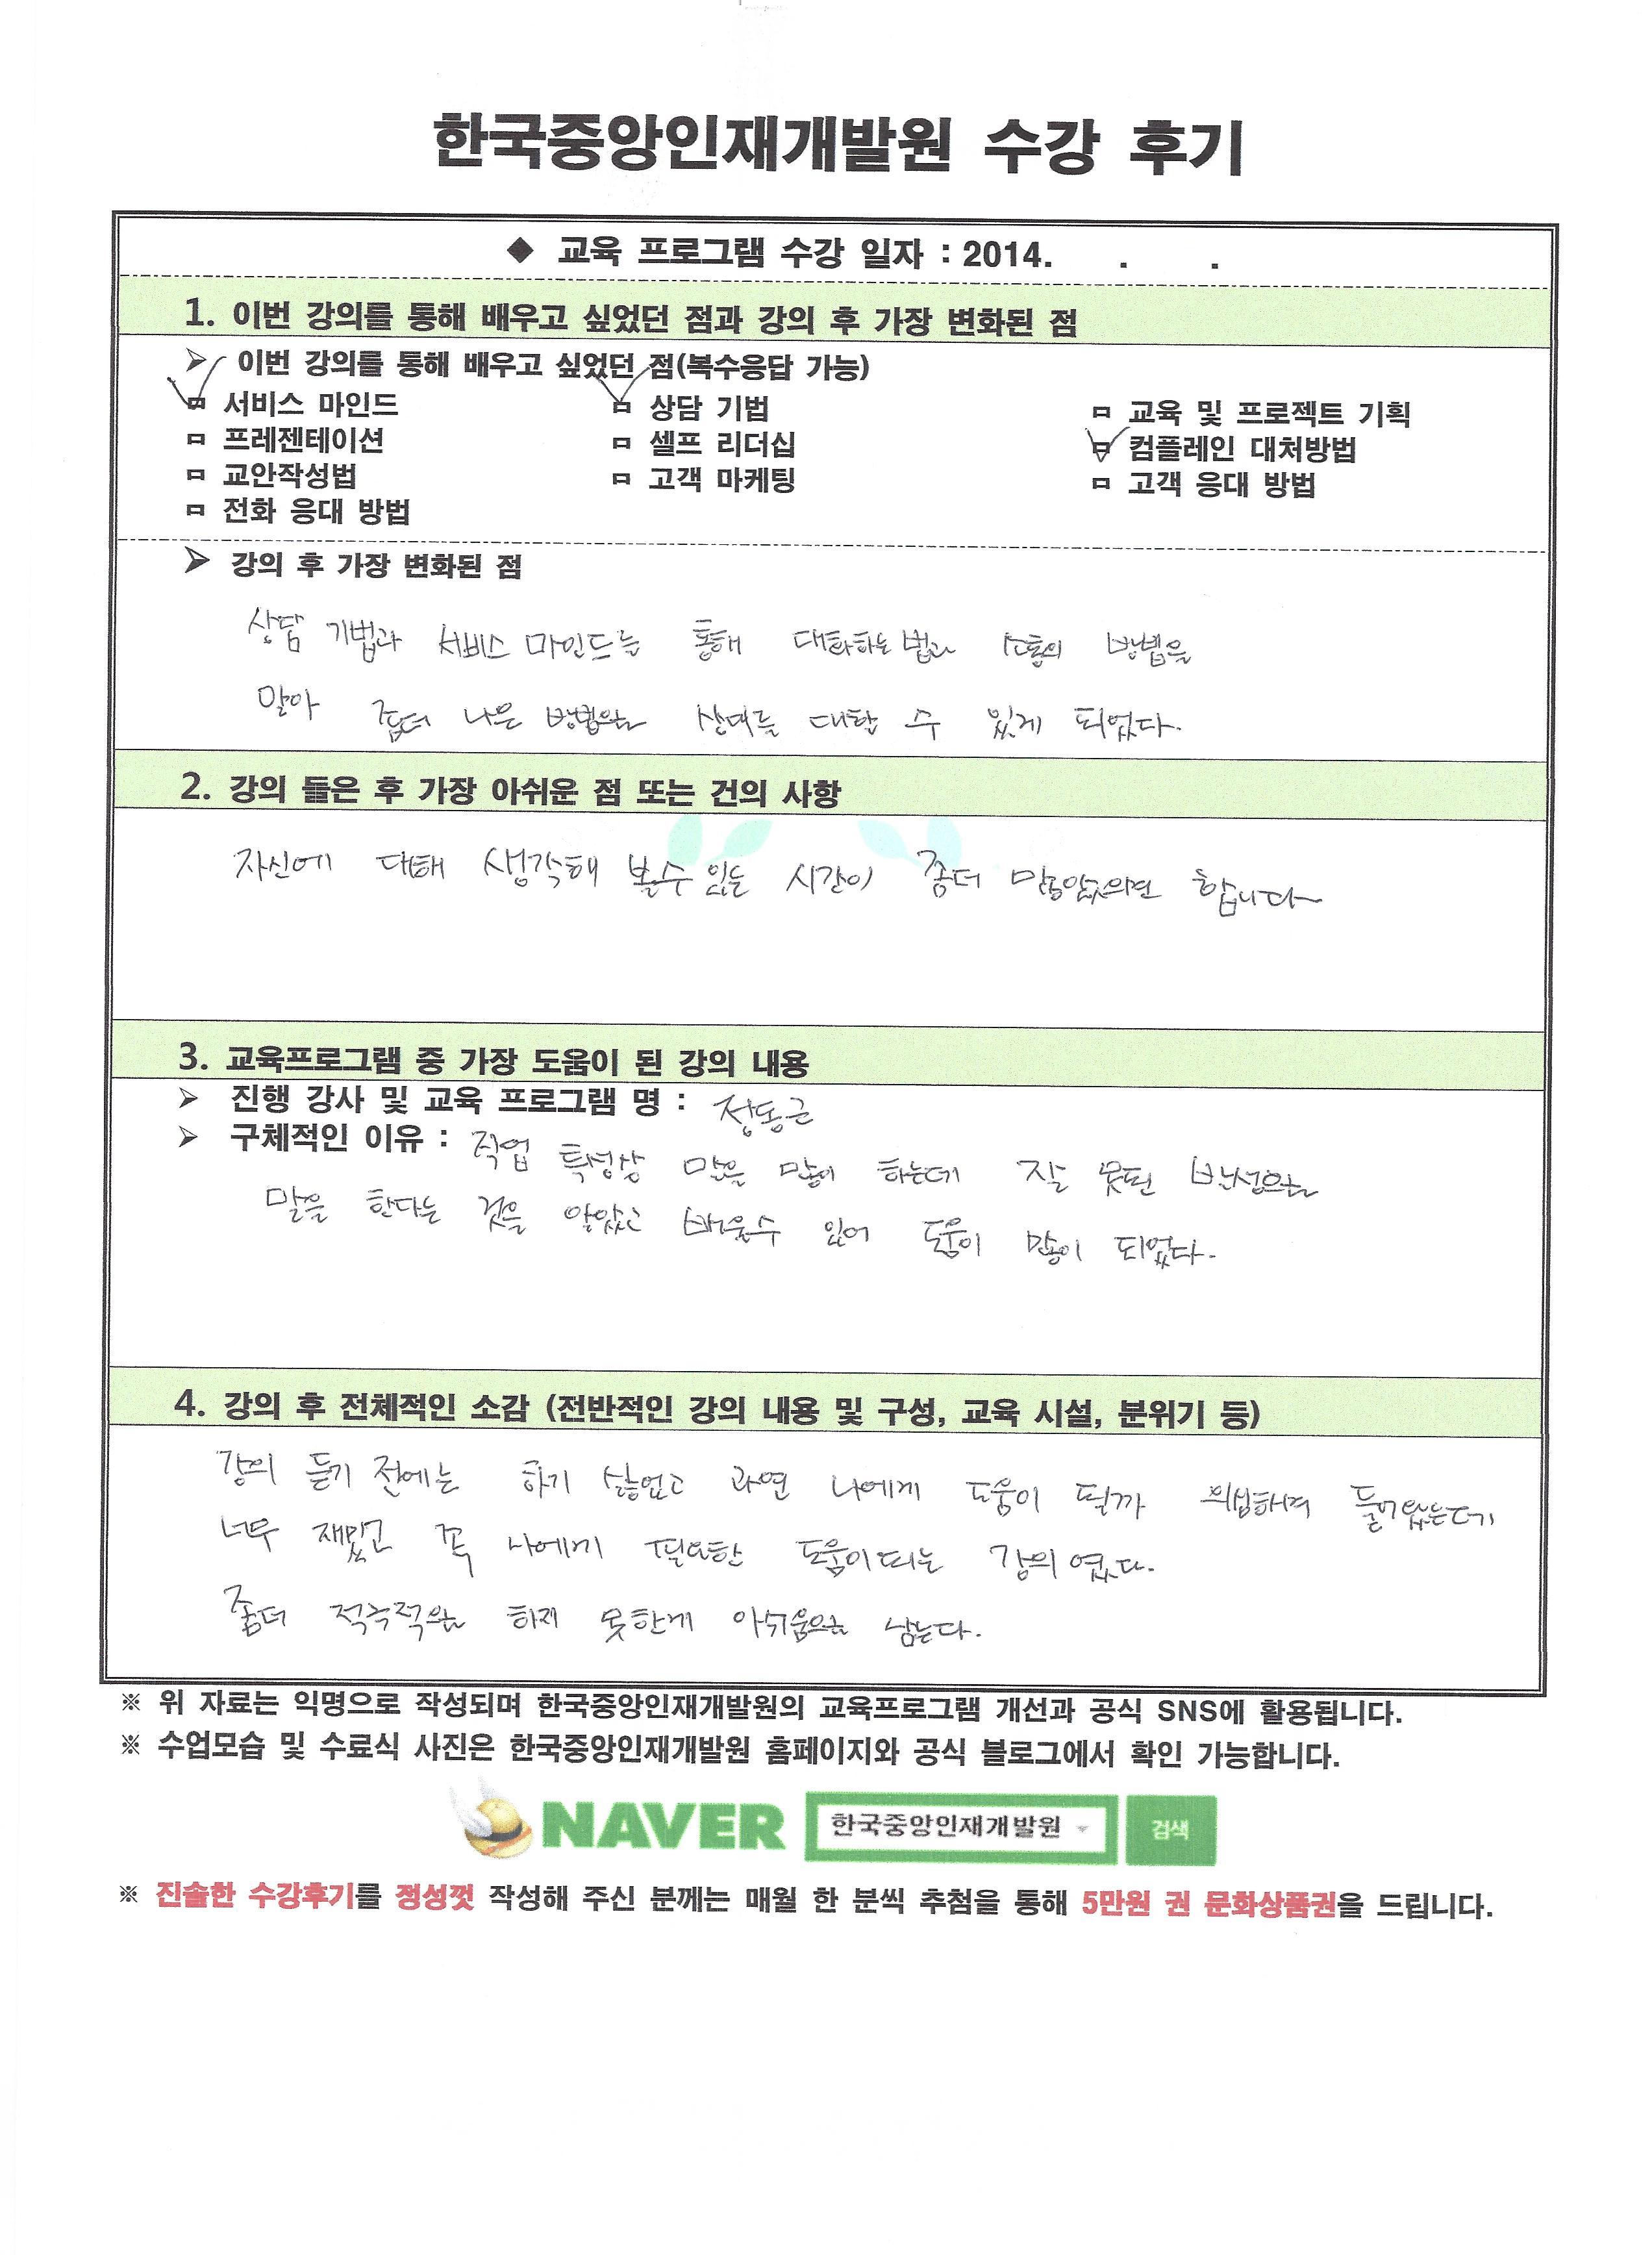 한국중앙인재개발원 수강 후기
◆ 교육 프로그램 수강 일자 : 2014. . .
1. 이번 강의를 통해 배우고 싶었던 점과 강의 후 가장 변화된 점
➢ 이번 강의를 통해 배우고 싶었던 점(복수응답 가능)
서비스 마인드 상담 기법 교육 및 프로젝트 기획
프레젠테이션 셀프 리더십 컴플레인 대처방법
교안작성법 고객 마케팅 고객 응대 방법
전화 응대 방법
➢ 강의 후 가장 변화된 점
상담 기법과 서비스 마인드를 통해 대화하는 법과 소통의 방법을
알아 좀더 나은 방법으로 상대를 대할 수 있게 되었다.
2. 강의 들은 후 가장 아쉬운 점 또는 건의 사항
자신에 대해 생각해 볼수 있는 시간이 좀더 많았으면 합니다~
3. 교육프로그램 중 가장 도움이 된 강의 내용
➢ 진행 강사 및 교육 프로그램 명 : 정동근
➢ 구체적인 이유 : 직업 특성상 말을 많이 하는데 잘 못된 방식으로
말을 한다는 것을 알았고 배울수 있어 도움이 많이 되었다.
4. 강의 후 전체적인 소감 (전반적인 강의 내용 및 구성, 교육 시설, 분위기 등)
강의 듣기 전에는 하기 싫었고 과연 나에게 도움이 될까 의심하며 들어왔는데
너무 재밌고 꼭 나에게 필요한 도움이 되는 강의 였다.
좀더 적극적으로 하지 못한게 아쉬움으로 남는다.
※ 위 자료는 익명으로 작성되며 한국중앙인재개발원의 교육프로그램 개선과 공식 SNS에 활용됩니다.
※ 수업모습 및 수료식 사진은 한국중앙인재개발원 홈페이지와 공식 블로그에서 확인 가능합니다.
NAVER 한국중앙인재개발원 검색
※ 진솔한 수강후기를 정성껏 작성해 주신 분께는 매월 한 분씩 추첨을 통해 5만원 권 문화상품권을 드립니다.